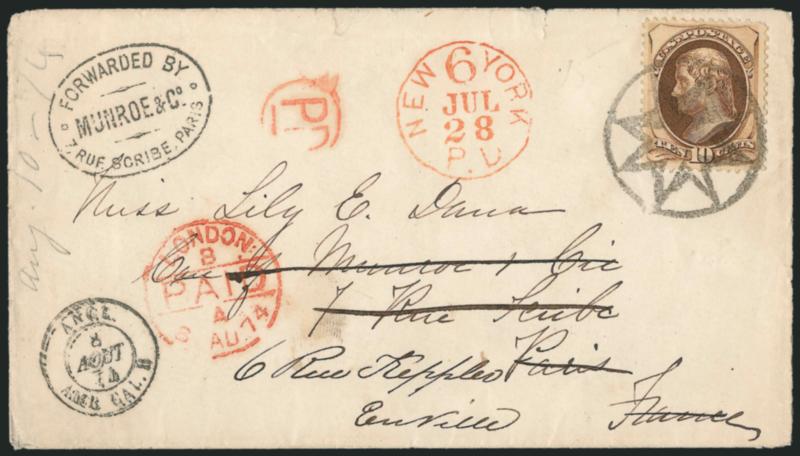 FORWARDED BY
MUNROE & Co.
7, RUE SCRIBE, PARIS
PD
NEW YORK
6
JUL
28
P.D
U.S. POSTAGE
TEN 10 CENTS
Aug. 10 - 74
Miss Lily E. Dana
Care of Munroe & Cie
7 Rue Scribe
Paris
France
6 Rue
LONDON
8
PAID
4
AU 74
ANGL.
8
AOUT
74
AMB. CAL. H